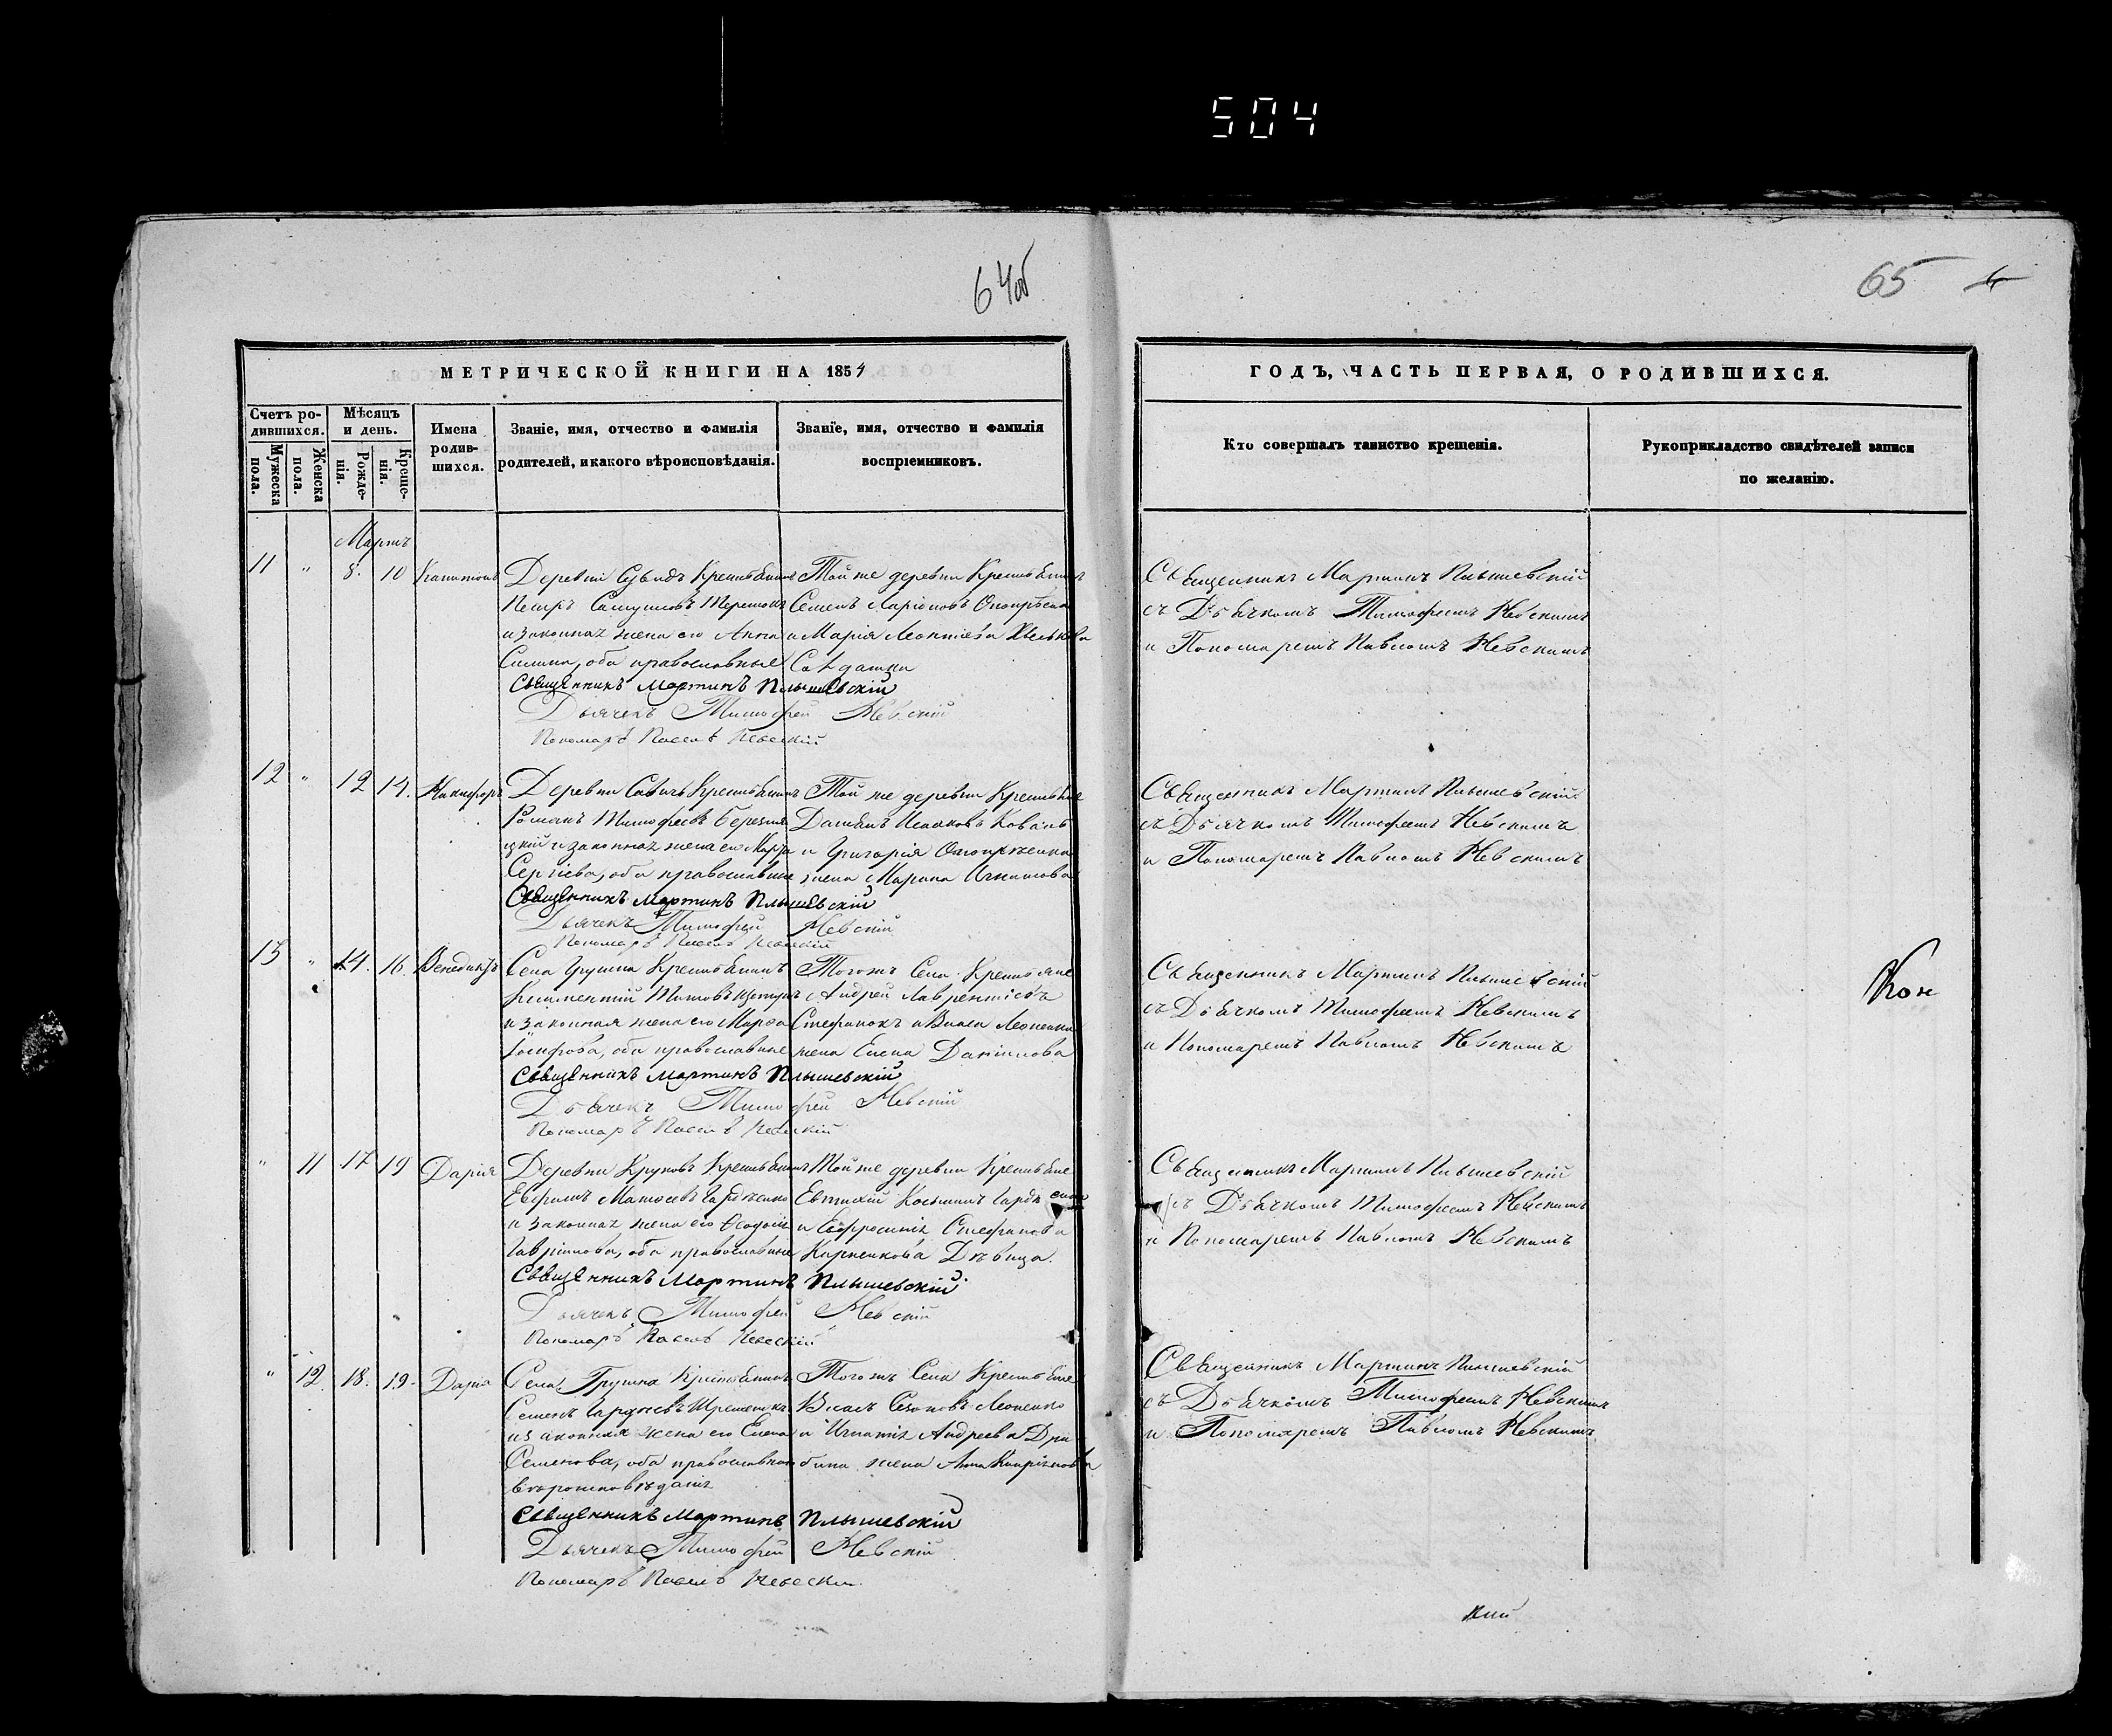 504
64об
65
МЕТРИЧЕСКОЙ КНИГИ НА 1854
ГОДЪ, ЧАСТЬ ПЕРВАЯ, О РОДИВШИХСЯ.
Счетъ ро-
дившихся.
Мужеска пола.
Женска пола.
Мѣсяцъ
и день.
Рожде-
нія.
Креще-
нія.
Имена
родив-
шихся.
Званіе, имя, отчество и фамилія
родителей, и какого вѣроисповѣданія.
Званіе, имя, отчество и фамилія
воспріемниковъ.
Кто совершалъ таинство крещенія.
Рукоприкладство свидѣтелей записи
по желанію.
Мартъ
11 " 8. 10 Капитонъ
Деревни Крестьянинъ
Петръ
и законная жена его Анна
оба православные
Священникъ Мартинъ Плышевскій
Дьячекъ Тимофей Невскій
Пономарь Павелъ Невскій
Той же деревни Крестьянинъ
Семенъ Ларіоновъ
и Марія Леонтіева
Солдатка
Священникъ Мартинъ Плышевскій
съ Дьячкомъ Тимофеемъ Невскимъ
и Пономаремъ Павломъ Невскимъ
12 " 12 14. Никифоръ
Деревни Савичь Крестьянинъ
Романъ Тимофеевъ
и законная жена его Марфа
Сергіева, оба православные
Священникъ Мартинъ Плышевскій
Дьячекъ Тимофей Невскій
Пономарь Павелъ Невскій
Той же деревни Крестьяне
Исааковъ Коваль
и Григорія
жена Марина Игнатова
Священникъ Мартинъ Плышевскій
съ Дьячкомъ Тимофеемъ Невскимъ
и Пономаремъ Павломъ Невскимъ
13 " 14. 16. Венедиктъ
Села Грушна Крестьянинъ
Климентій Титовъ
и законная жена его Марфа
Іосифова, оба православные
Священникъ Мартинъ Плышевскій
Дьячекъ Тимофей Невскій
Пономарь Павелъ Невскій
Тогожъ Села Крестьяне
Андрей Лаврентіевъ
Стефанокъ и Власа Леоненка
жена Елена Даніилова
Священникъ Мартинъ Плышевскій
съ Дьячкомъ Тимофеемъ Невскимъ
и Пономаремъ Павломъ Невскимъ
Кон
" 11 17 19 Дарія
Деревни Круковъ Крестьянинъ
Ефремъ
и законная жена его Ѳеодосія
Гавріилова, оба православные
Священникъ Мартинъ Плышевскій
Дьячекъ Тимофей Невскій
Пономарь Павелъ Невскій
Той же деревни Крестьяне
Евтихій Косьминъ
и Ефросинія Стефанова
Карпенкова Дѣвица.
Священникъ Мартинъ Плышевскій
съ Дьячкомъ Тимофеемъ Невскимъ
и Пономаремъ Павломъ Невскимъ
" 12 18. 19. Дарія
Села Грушна Крестьянинъ
Семенъ
и законная жена его Елена
Семенова, оба православнаго
вѣроисповѣданія
Священникъ Мартинъ Плышевскій
Дьячекъ Тимофей Невскій
Пономарь Павелъ Невскій
Тогожъ Села Крестьяне
Власъ Сазоновъ Леоненко
и Игнатія Андреева Дри
бина жена Анна
Священникъ Мартинъ Плышевскій
съ Дьячкомъ Тимофеемъ Невскимъ
и Пономаремъ Павломъ Невскимъ
кий